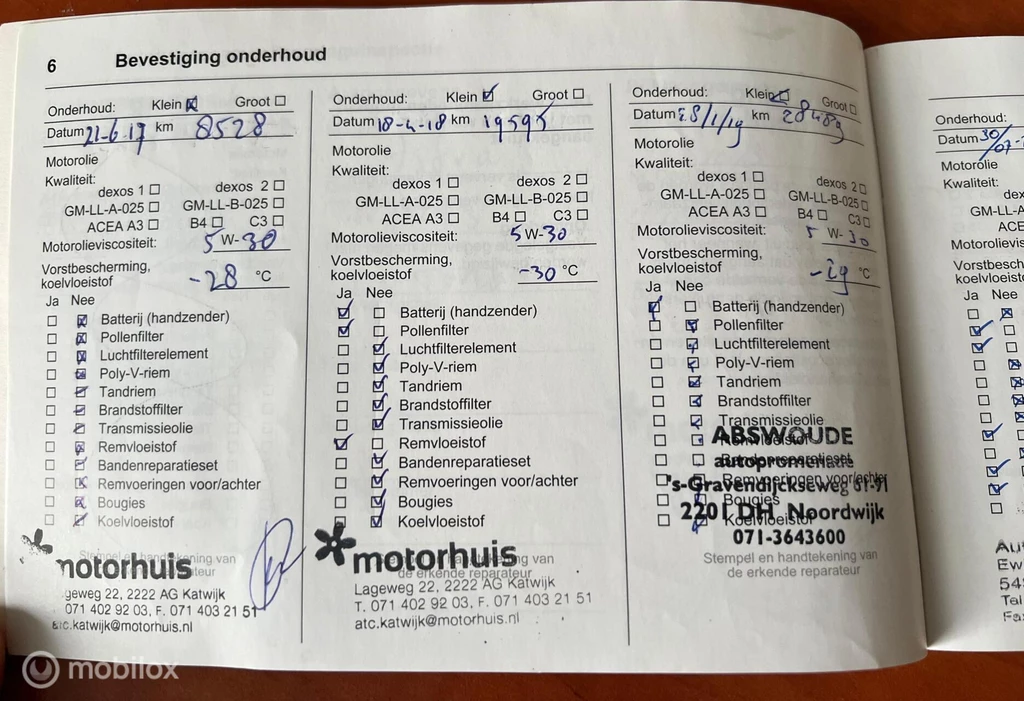 6 Bevestiging onderhoud
Onderhoud: Klein Groot
Datum 21-6-17 km 8528
Motorolie
Kwaliteit:
dexos 1 dexos 2
GM-LL-A-025 GM-LL-B-025
ACEA A3 B4 C3
Motorolieviscositeit: 5 W-30
Vorstbescherming,
koelvloeistof -28 °C
Ja Nee
Batterij (handzender)
Pollenfilter
Luchtfilterelement
Poly-V-riem
Tandriem
Brandstoffilter
Transmissieolie
Remvloeistof
Bandenreparatieset
Remvoeringen voor/achter
Bougies
Koelvloeistof
Stempel en handtekening van
motorhuis
geweg 22, 2222 AG Katwijk
071 402 92 03, F. 071 403 21 51
atc.katwijk@motorhuis.nl
Onderhoud: Klein Groot
Datum 18-4-18 km 19595
Motorolie
Kwaliteit:
dexos 1 dexos 2
GM-LL-A-025 GM-LL-B-025
ACEA A3 B4 C3
Motorolieviscositeit: 5 W-30
Vorstbescherming,
koelvloeistof -30 °C
Ja Nee
Batterij (handzender)
Pollenfilter
Luchtfilterelement
Poly-V-riem
Tandriem
Brandstoffilter
Transmissieolie
Remvloeistof
Bandenreparatieset
Remvoeringen voor/achter
Bougies
Koelvloeistof
motorhuis
de erkende reparateur
Lageweg 22, 2222 AG Katwijk
T. 071 402 92 03, F. 071 403 21 51
atc.katwijk@motorhuis.nl
Onderhoud: Klein Groot
Datum 28/1/19 km 28489
Motorolie
Kwaliteit:
dexos 1 dexos 2
GM-LL-A-025 GM-LL-B-025
ACEA A3 B4 C3
Motorolieviscositeit: 5 W-30
Vorstbescherming,
koelvloeistof -19 °C
Ja Nee
Batterij (handzender)
Pollenfilter
Luchtfilterelement
Poly-V-riem
Tandriem
Brandstoffilter
Transmissieolie
ABSWOUDE
autopromenade
's-Gravendijckseweg 61-91
2201 DH Noordwijk
071-3643600
Stempel en handtekening van
de erkende reparateur
Onderhoud:
Datum 30/07-
Motorolie
Kwaliteit:
dex
GM-LL-A
ACE
Motorolievis
Vorstbesch
koelvloeisto
Ja Nee
Aut
Ew
54
Tel
Fa
mobilox